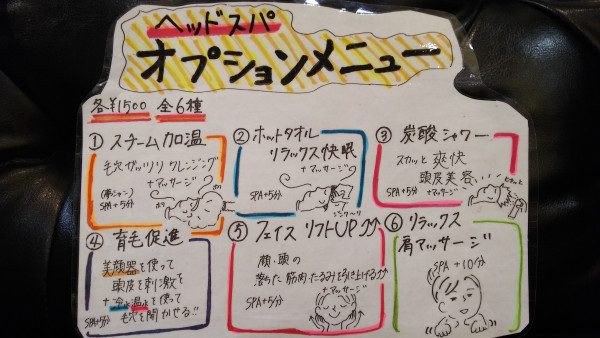 ヘッドスパ
オプションメニュー
各¥1500 全6種
① スチーム加温
毛穴ガッツリ クレンジング
+マッサージ
SPA+5分
② ホットタオル
リラックス快眠
+マッサージ
SPA+5分
ジワ〜リ
③ 炭酸シャワー
スカッと 爽快
頭皮美容
+マッサージ
SPA+5分
④ 育毛促進
美顔器を使って
頭皮を刺激を
+冷と温とを使って
毛穴を開かせる!!
SPA+5分
⑤ フェイス リフトUP⤴⤴
顔・頭の
落ちた筋肉・たるみを引き上げる⤴⤴
+マッサージ
SPA+5分
⑥ リラックス
肩マッサージ
SPA+10分